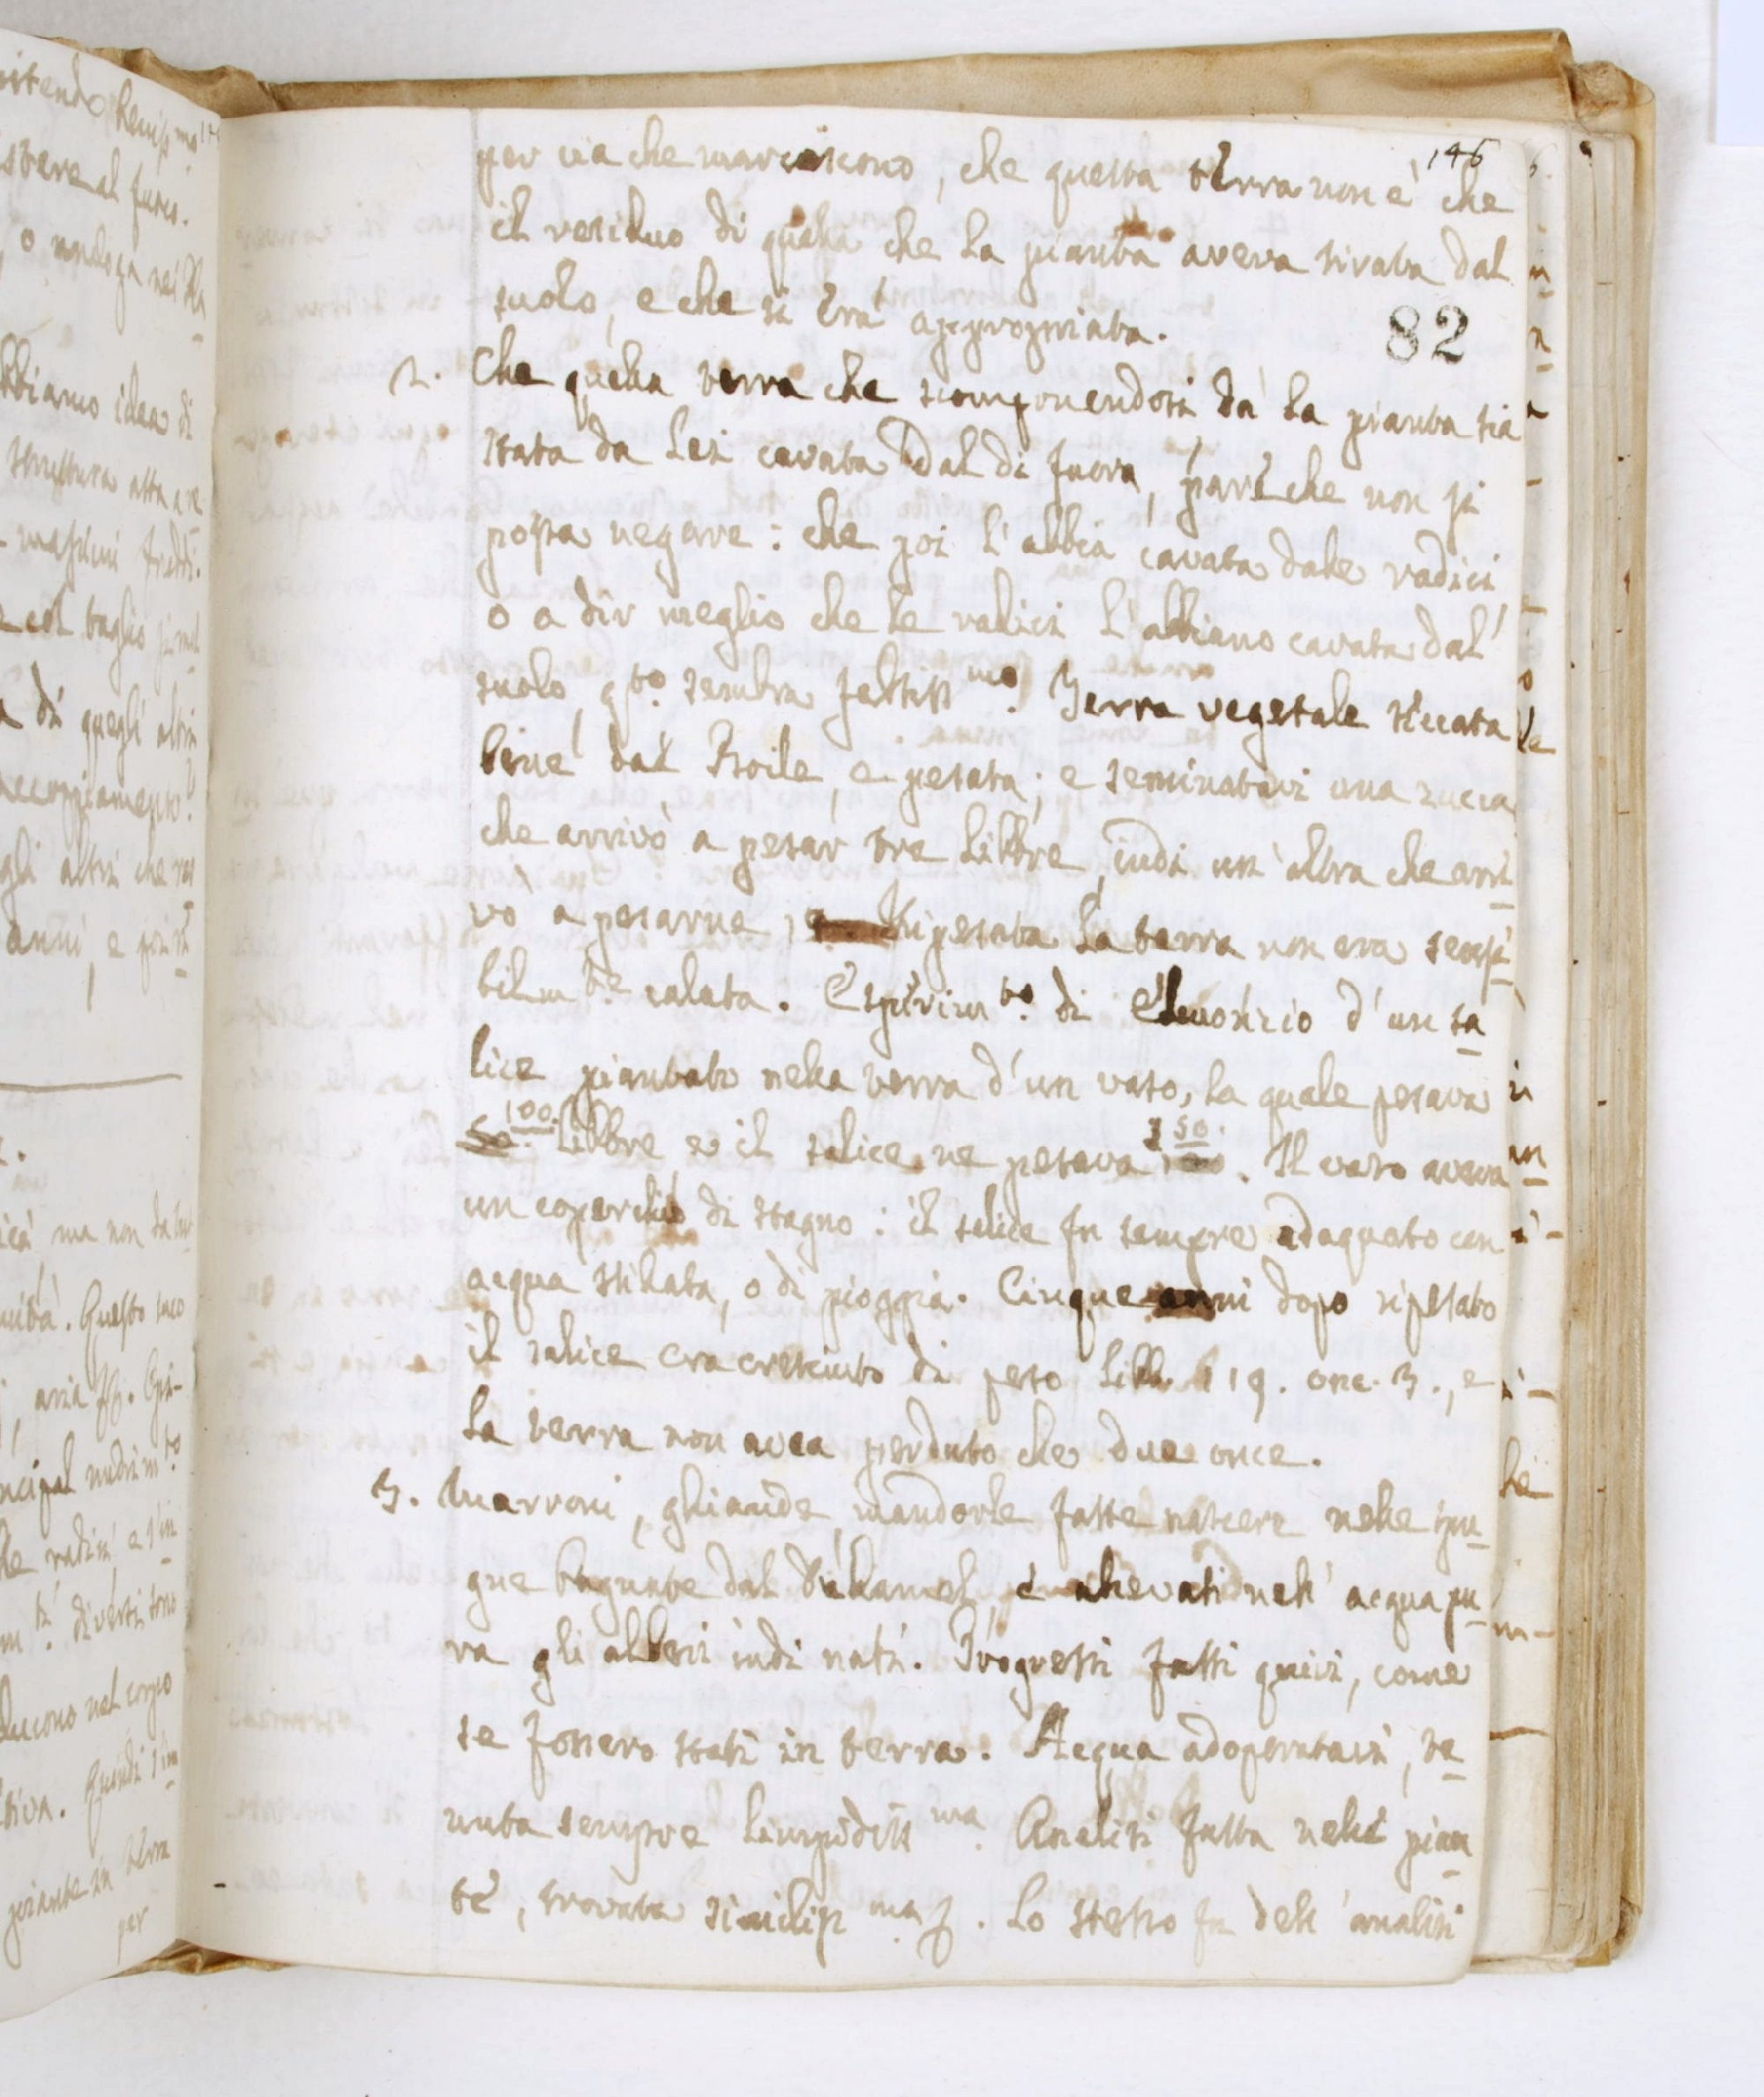 146
per via che marciscono, che questa terra non è che
il residuo di quella che la pianta aveva tirata dal
suolo, e che si era appropriata.
82
2. Che quella terra che scomponendosi dà la pianta sia
stata da lei cavata dal di fuora, pare che non si
possa negare: che poi l'abbia cavata dalle radici
o a dir meglio che le radici l'abbiano cavata dal
suolo, qto. sembra falsissmo. Terra vegetale seccata
bene dal Boile e pesata: e seminatavi una zucca
che arrivò a pesar tre libbre, indi un'altra che arri
vò a pesarne Ripesata la terra non era sensi
bilmte calata. Esperimto. di d'un sa
lice piantato nella terra d'un vaso, la quale pesava
100. libbre, e il salice ne pesava 50. Il vaso aveva
un coperchio di stagno: il salice fu sempre adaquato con
acqua stillata, o di pioggia. Cinque anni dopo ripesato
il salice era cresciuto di peso libb. 119. onc. 3., e
la terra non avea perduto che due once.
3. Marroni, ghiande, mandorle fatte nascere nelle spu
gne bagnate dal Duhamel, e allevati nell'acqua pu
ra gli alberi indi nati. Progressi fatti quivi, come
se fossero stati in terra. Acqua adoperatavi, te
nuta sempre limpidissma. Analisi fatta nelle pian
te, trovata similissma. Lo stesso fu dell'analisi